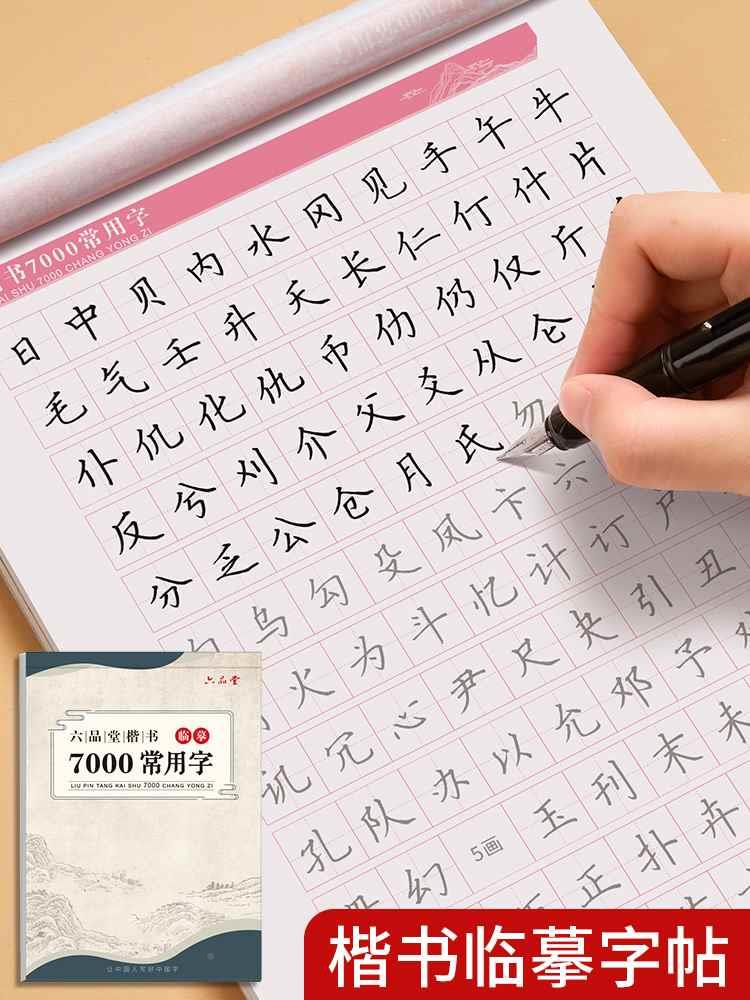 书7000常用字
AI SHU 7000 CHANG YONG ZI
日中贝内水冈见手午牛
毛气壬升夭长仁仃什片
仆仉化仇币仂仍仅斤
反兮刈介父爻从仑
分乏公仓月氏勿
乌勾殳凤卞六
火为斗忆计订户
讥冗心尹尺夬引丑
孔队办以允邓予
幻 5画 玉刊末未
正扑卉
六品堂
六品堂楷书 临摹
7000常用字
LIU PIN TANG KAI SHU 7000 CHANG YONG ZI
让中国人写好中国字
楷书临摹字帖